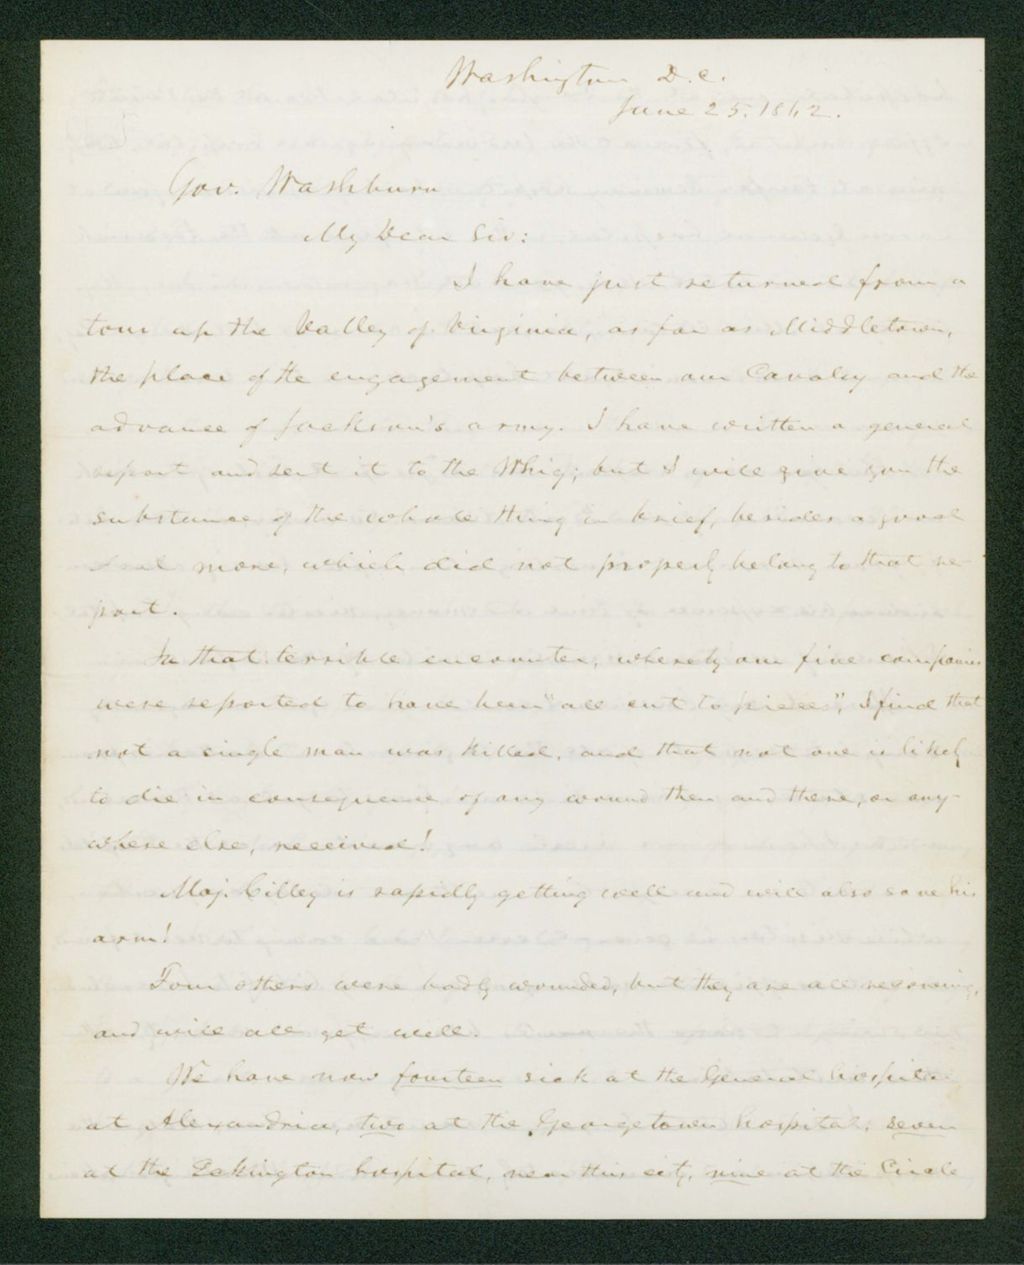 Washington D.C.
June 25. 1862.
Gov. Washburn
My Dear Sir:
I have just returned from a
tour up the Valley of Virginia, as far as Middletown,
the place of the engagement between our Cavalry and the
advance of Jackson's army. I have written a general
report and sent it to the Whig; but I will give you the
substance of the whole thing in brief, besides a good
deal more, which did not properly belong to that re-
port.
In that terrible encounter, whereby our five companies
were reported to have been "all cut to pieces", I find that
not a single man was killed, and that not one is likely
to die in consequence of any wound then and there, or any-
where else, received!
Maj. Cilley is rapidly getting well and will also save his
arm!
Four others were badly wounded, but they are all recovering,
and will all get well.
We have now fourteen sick at the General hospital
at Alexandria, two at the Georgetown hospital; seven
at the Eckington hospital, near this city, nine at the Circle